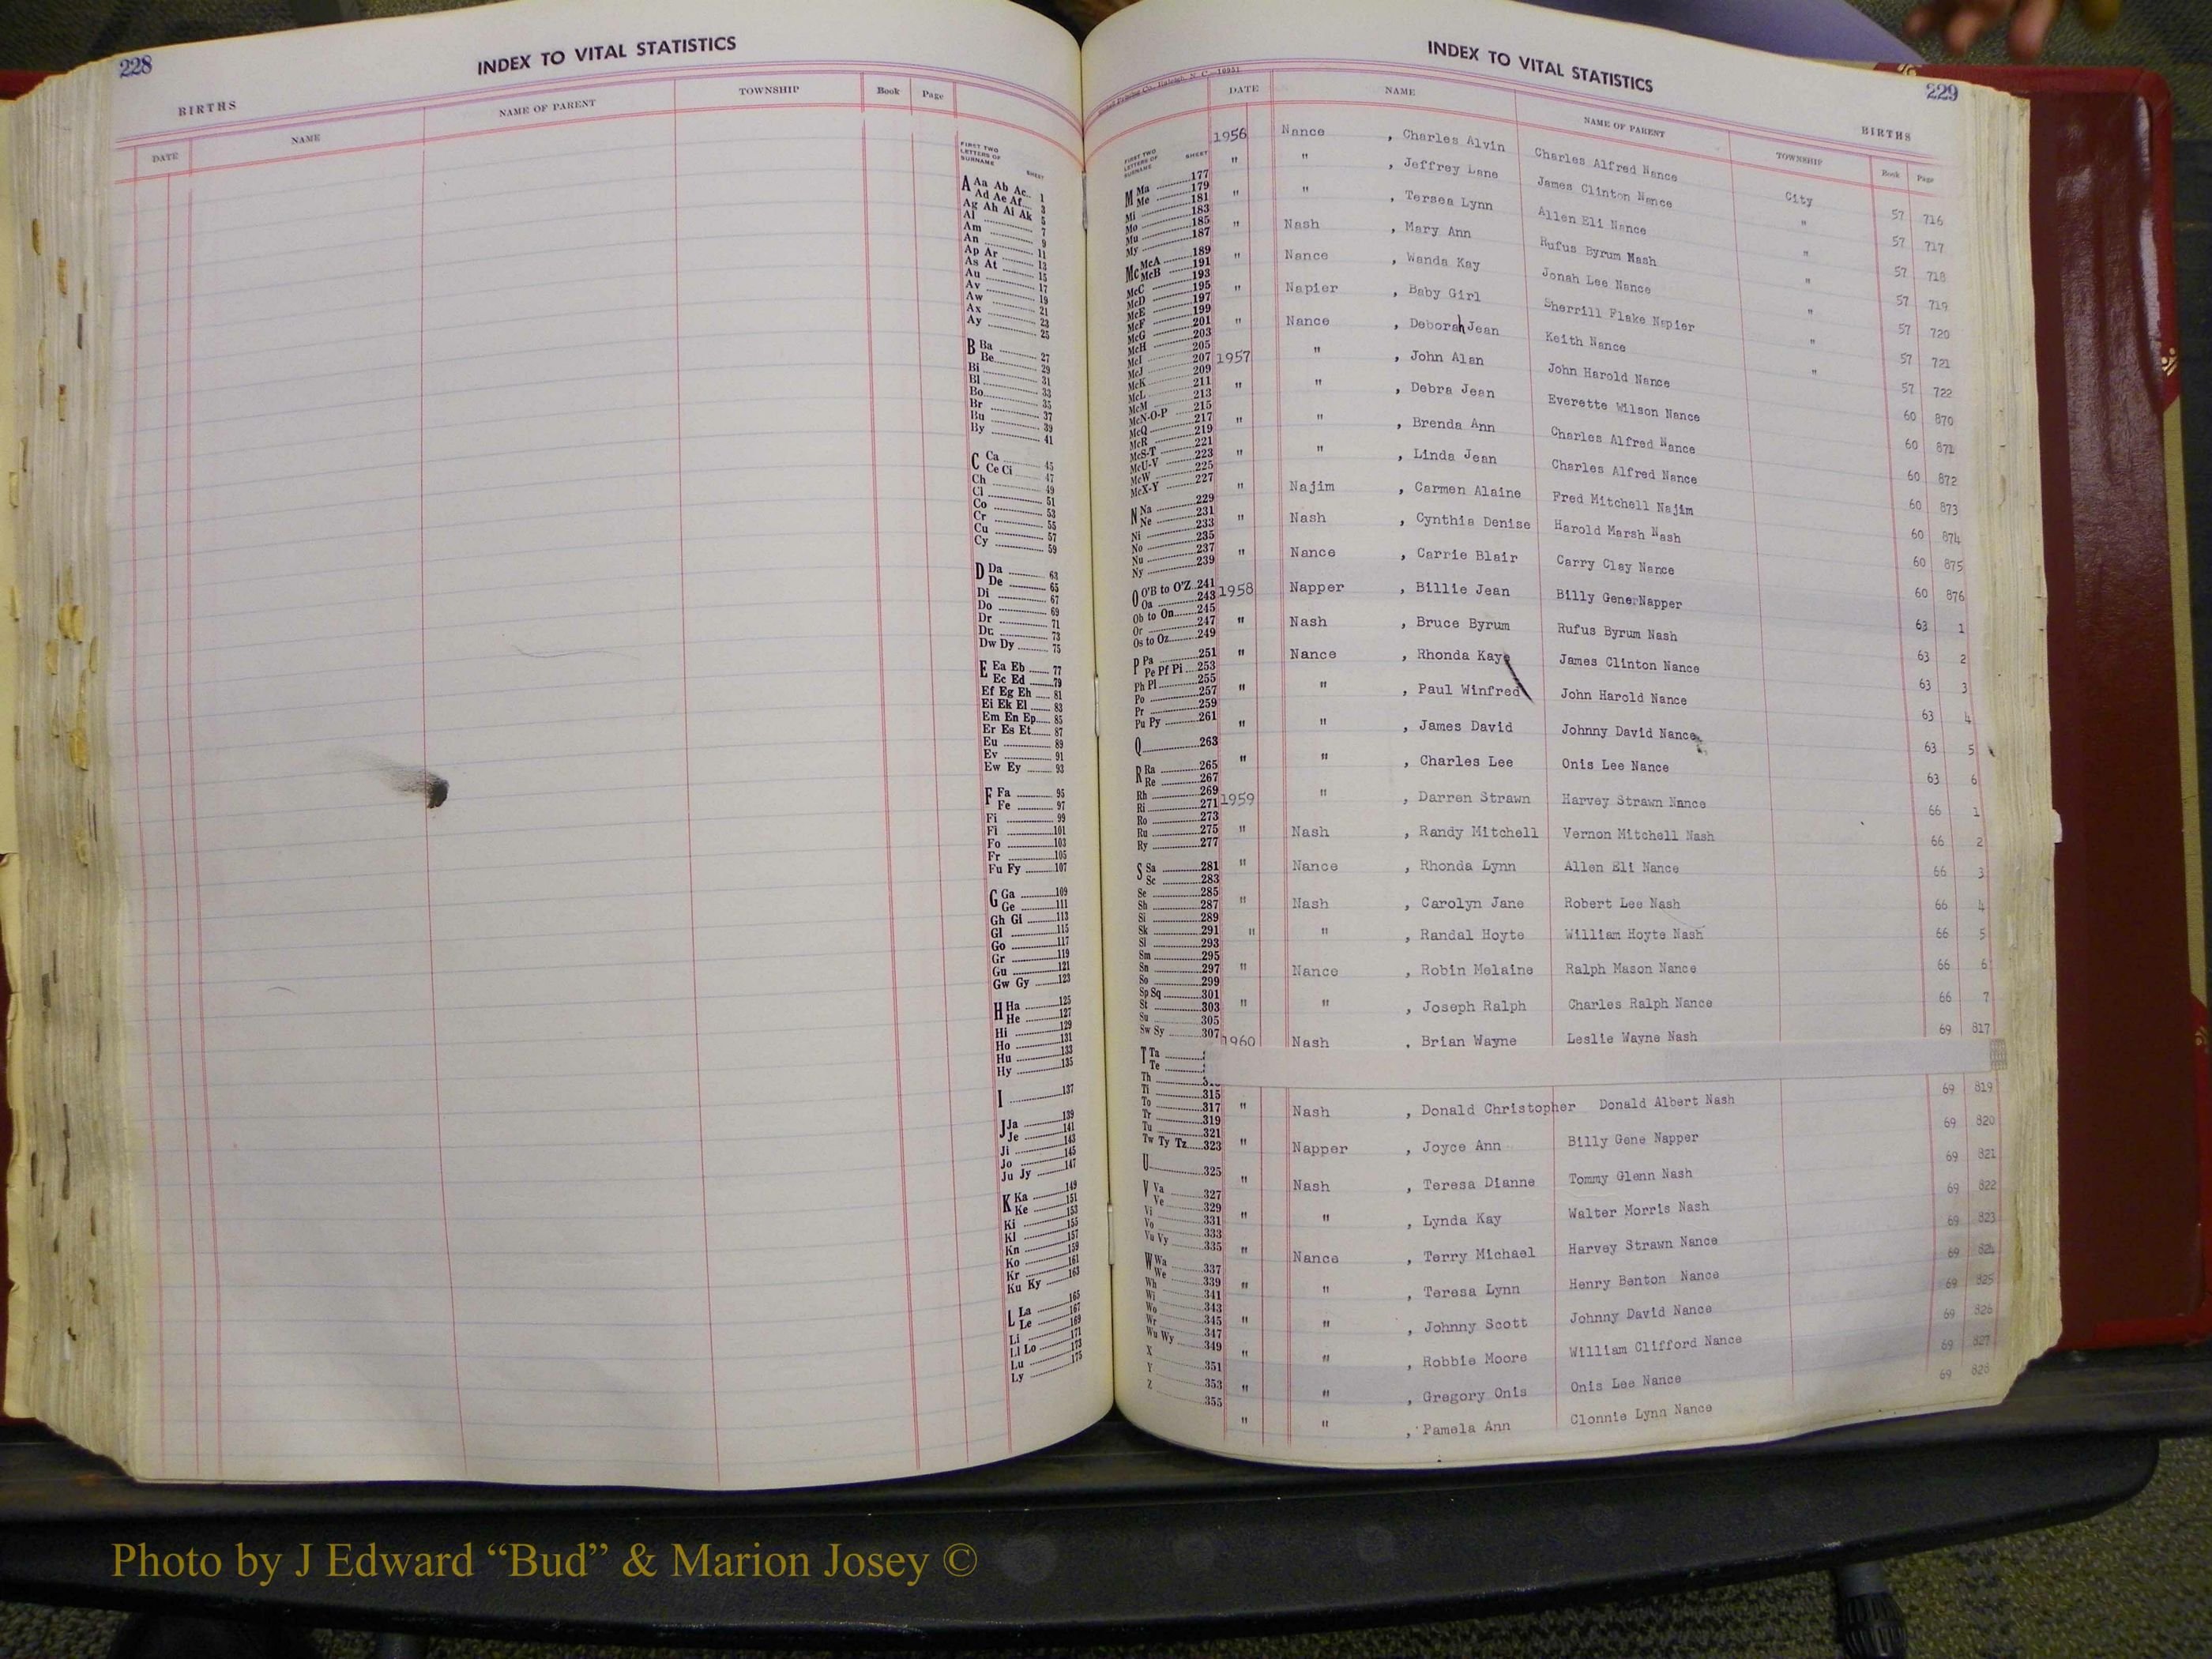 228
INDEX TO VITAL STATISTICS
BIRTHS
DATE NAME NAME OF PARENT TOWNSHIP Book Page
FIRST TWO
LETTERS OF
SURNAME SHEET
A Aa Ab Ac 1
Ad Ae Af 3
Ag Ah Ai Ak 5
Al 7
Am 9
An 11
Ap Ar 13
As At 15
Au 17
Av 19
Aw 21
Ax 23
Ay 25
B Ba 27
Be 29
Bi 31
Bl 33
Bo 35
Br 37
Bu 39
By 41
C Ca 45
Ce Ci 47
Ch 49
Cl 51
Co 53
Cr 55
Cu 57
Cy 59
D Da 63
De 65
Di 67
Do 69
Dr 71
Du 73
Dw Dy 75
E Ea Eb 77
Ec Ed 79
Ef Eg Eh 81
Ei Ek El 83
Em En Ep 85
Er Es Et 87
Eu 89
Ev 91
Ew Ey 93
F Fa 95
Fe 97
Fi 99
Fl 101
Fo 103
Fr 105
Fu Fy 107
G Ga 109
Ge 111
Gh Gi 113
Gl 115
Go 117
Gr 119
Gu 121
Gw Gy 123
H Ha 125
He 127
Hi 129
Ho 131
Hu 133
Hy 135
I 137
J Ja 139
Je 141
Ji 143
Jo 145
Ju Jy 147
K Ka 149
Ke 151
Ki 153
Kl 155
Kn 157
Ko 159
Kr 161
Ku Ky 163
L La 165
Le 167
Li 169
Ll Lo 171
Lu 173
Ly 175
INDEX TO VITAL STATISTICS
229
BIRTHS
Printing Co., Raleigh, N. C.—10951
DATE NAME NAME OF PARENT TOWNSHIP Book Page
FIRST TWO
LETTERS OF
SURNAME SHEET
M Ma 177
Me 179
Mi 181
Mo 183
Mu 185
My 187
Mc McA 189
McB 191
McC 193
McD 195
McE 197
McF 199
McG 201
McH 203
McI 205
McJ 207
McK 209
McL 211
McM 213
McN-O-P 215
McQ 217
McR 219
McS-T 221
McU-V 223
McW 225
McX-Y 227
N Na 229
Ne 231
Ni 233
No 235
Nu 237
Ny 239
O O'B to O'Z 241
Oa 243
Ob to On 245
Or 247
Os to Oz 249
P Pa 251
Pe Pf Pi 253
Ph Pl 255
Po 257
Pr 259
Pu Py 261
Q 263
R Ra 265
Re 267
Rh 269
Ri 271
Ro 273
Ru 275
Ry 277
S Sa 281
Sc 283
Se 285
Sh 287
Si 289
Sk 291
Sl 293
Sm 295
Sn 297
So 299
Sp Sq 301
St 303
Su 305
Sw Sy 307
T Ta
Te
Th
Ti 315
To 317
Tr 319
Tu 321
Tw Ty Tz 323
U 325
V Va 327
Ve 329
Vi 331
Vo 333
Vu Vy 335
W Wa 337
We 339
Wh 341
Wi 343
Wo 345
Wr 347
Wu Wy 349
X 351
Y 353
Z 355
1956 Nance , Charles Alvin Charles Alfred Nance City 57 716
" " , Jeffrey Lane James Clinton Nance " 57 717
" " , Tersea Lynn Allen Eli Nance " 57 718
" Nash , Mary Ann Rufus Byrum Nash " 57 719
" Nance , Wanda Kay Jonah Lee Nance " 57 720
" Napier , Baby Girl Sherrill Flake Napier " 57 721
" Nance , Deborah Jean Keith Nance " 57 722
1957 " , John Alan John Harold Nance 60 870
" " , Debra Jean Everette Wilson Nance 60 871
" " , Brenda Ann Charles Alfred Nance 60 872
" " , Linda Jean Charles Alfred Nance 60 873
" Najim , Carmen Alaine Fred Mitchell Najim 60 874
" Nash , Cynthia Denise Harold Marsh Nash 60 875
" Nance , Carrie Blair Carry Clay Nance 60 876
1958 Napper , Billie Jean Billy Gene Napper 63 1
" Nash , Bruce Byrum Rufus Byrum Nash 63 2
" Nance , Rhonda Kaye James Clinton Nance 63 3
" " , Paul Winfred John Harold Nance 63 4
" " , James David Johnny David Nance 63 5
" " , Charles Lee Onis Lee Nance 63 6
1959 " , Darren Strawn Harvey Strawn Nance 66 1
" Nash , Randy Mitchell Vernon Mitchell Nash 66 2
" Nance , Rhonda Lynn Allen Eli Nance 66 3
" Nash , Carolyn Jane Robert Lee Nash 66 4
" " , Randal Hoyte William Hoyte Nash 66 5
" Nance , Robin Melaine Ralph Mason Nance 66 6
" " , Joseph Ralph Charles Ralph Nance 66 7
1960 Nash , Brian Wayne Leslie Wayne Nash 69 817
" Nash , Donald Christopher Donald Albert Nash 69 819
" Napper , Joyce Ann Billy Gene Napper 69 820
" Nash , Teresa Dianne Tommy Glenn Nash 69 821
" " , Lynda Kay Walter Morris Nash 69 822
" Nance , Terry Michael Harvey Strawn Nance 69 823
" " , Teresa Lynn Henry Benton Nance 69 824
" " , Johnny Scott Johnny David Nance 69 825
" " , Robbie Moore William Clifford Nance 69 826
" " , Gregory Onis Onis Lee Nance 69 827
" " , Pamela Ann Clonnie Lynn Nance 69 828
Photo by J Edward “Bud” & Marion Josey ©